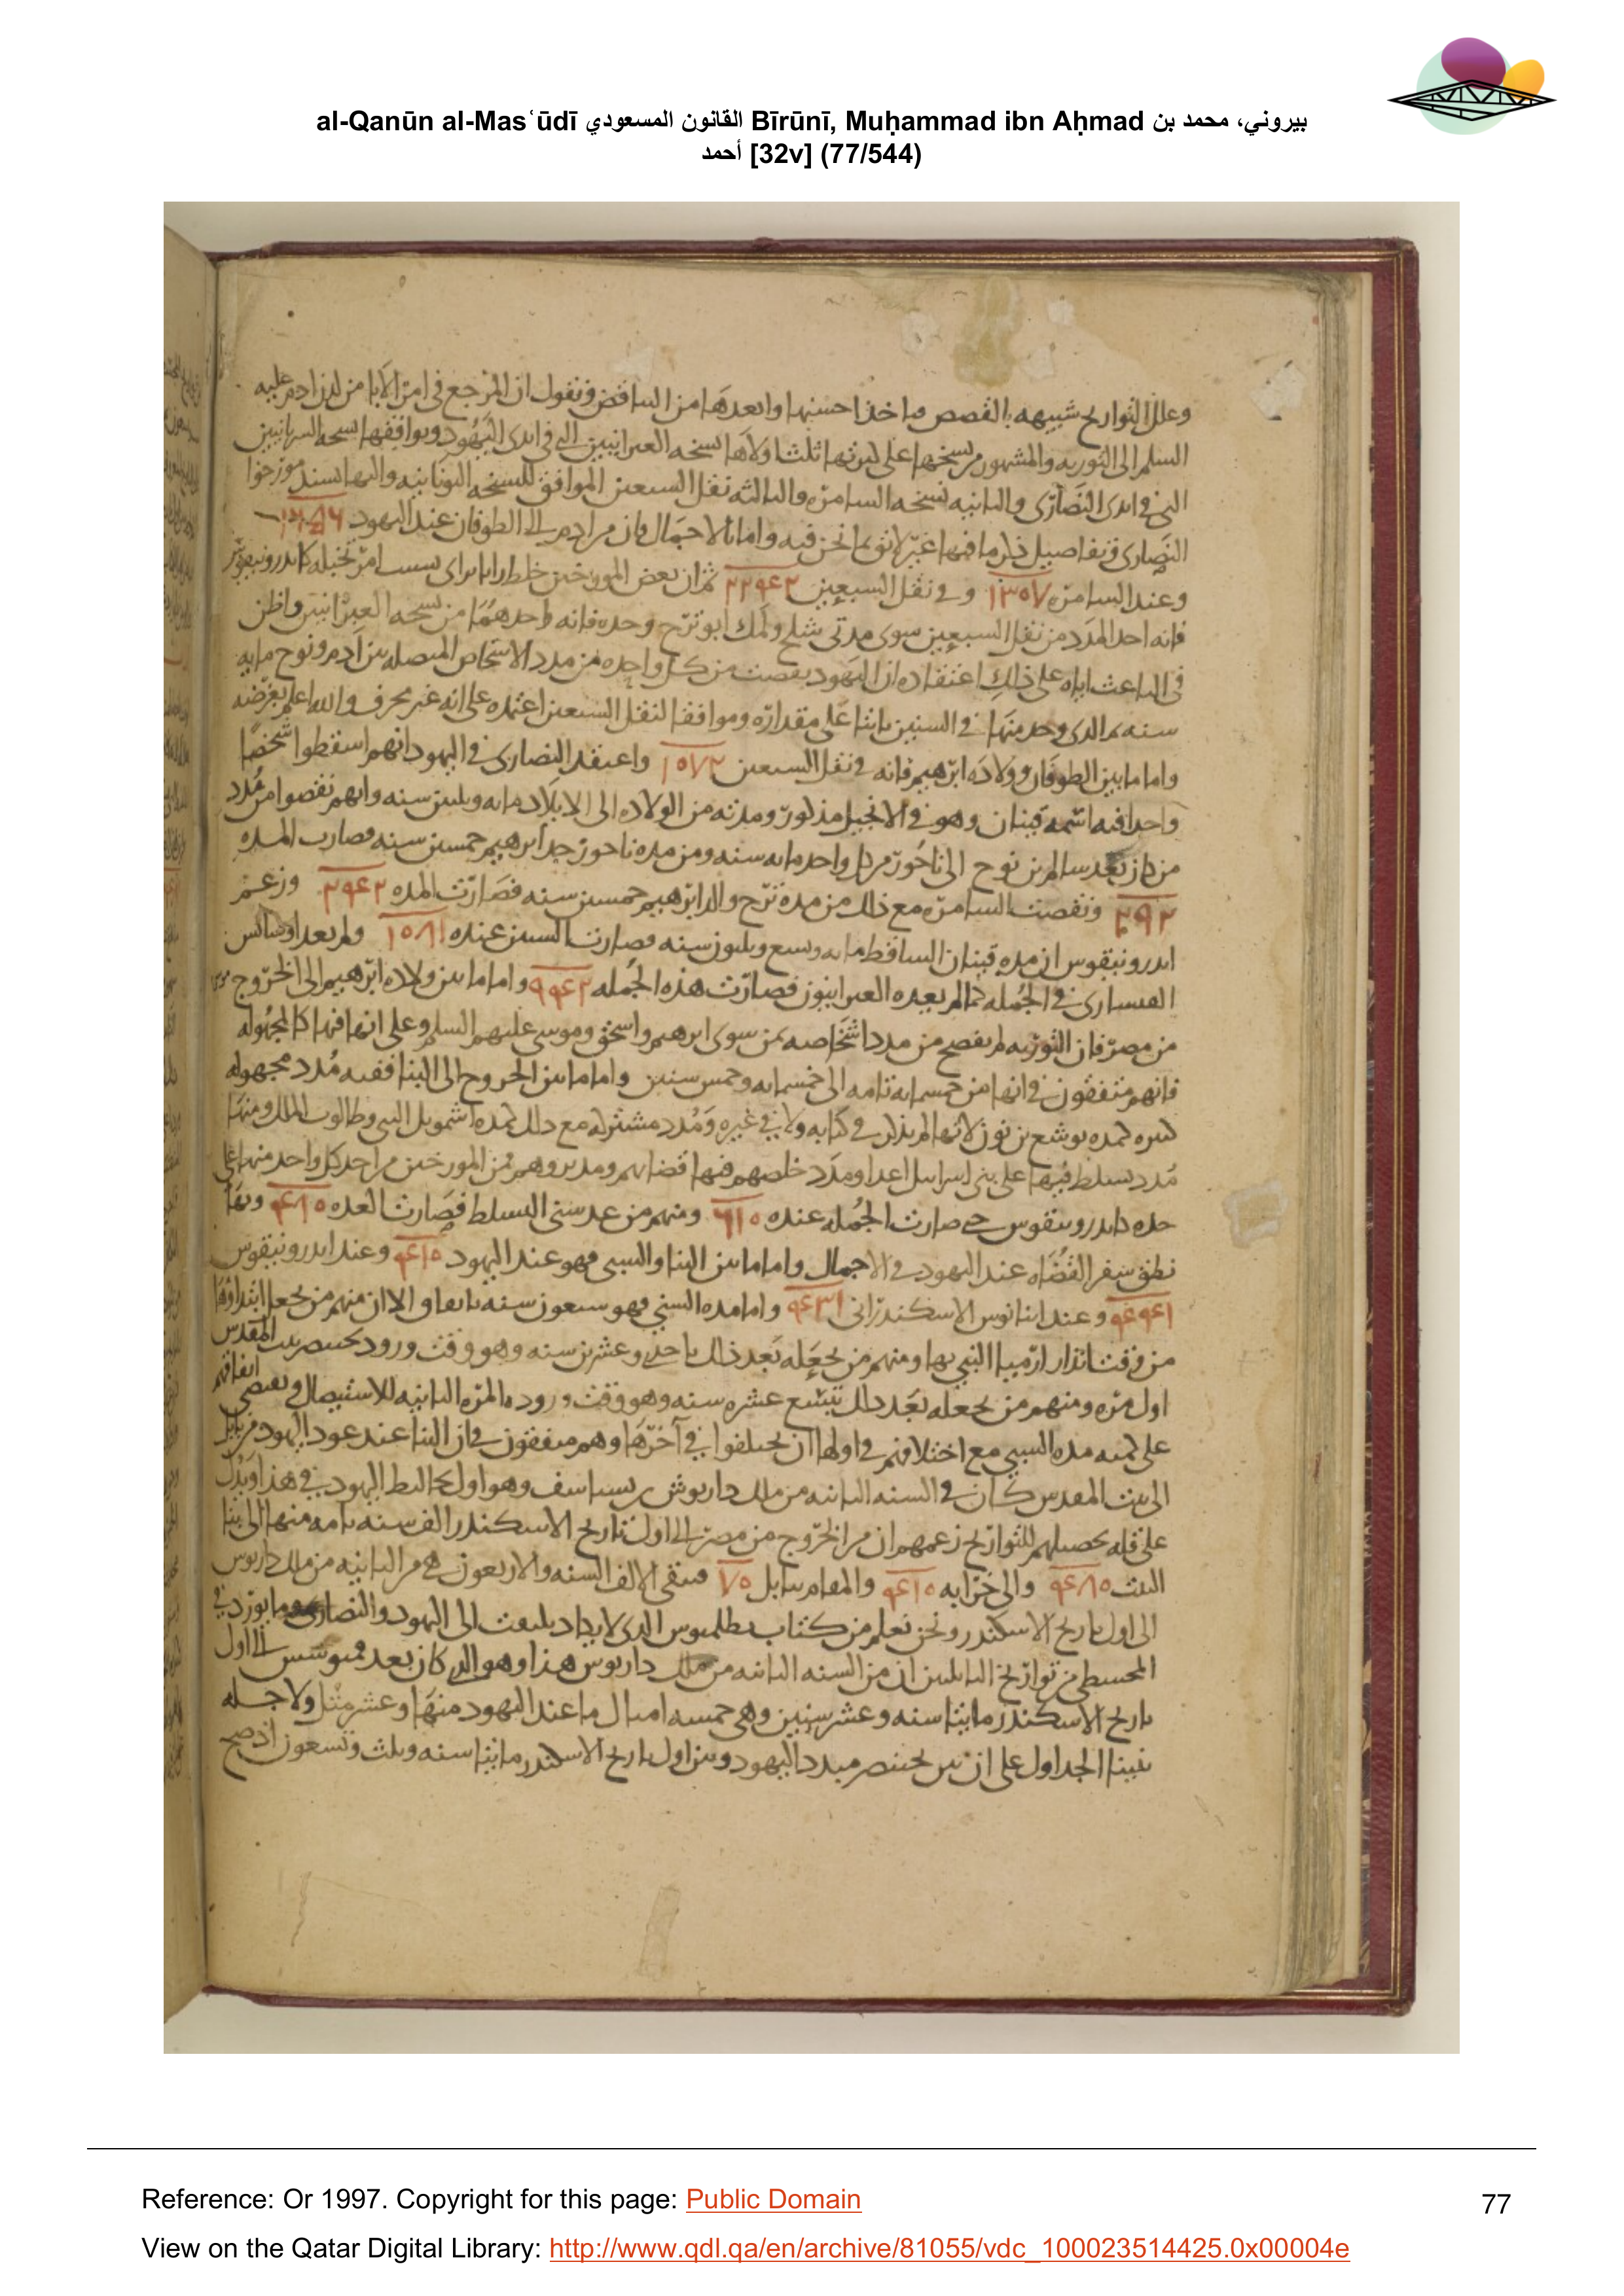 al-Qanūn al-Masʿūdī القانون المسعودي Bīrūnī, Muḥammad ibn Aḥmad بيروني، محمد بن
أحمد [32v] (77/544)
وعلل التواريخ شبيهه بالقصص فناخذ احسنها وابعدها من التناقض ونقول ان المرجع في امر الآبا من لدن ادم عليه
السلم الى التوريه والمشهور من نسخها على كثرتها ثلث اولاها نسخه العبرانيين التي في ايدى اليهود ويوافقها نسخه السريانيين
التي في ايدى النصارى والثانيه نسخه السامره والثالثه نقل السبعين الموافق للنسخه اليونانيه واليها يستند مورخوا
النصارى وتفاصيل ذلك ما فيها غير لائق بما نحن فيه واما بالاجمال فان من ادم الى الطوفان عند اليهود
وعند السامره ١٣٥٧ وفي نقل السبعين ٢٢٤٢ ثم ان بعض المورخين خلط راياً براى بسبب امر تخيله كاندرونيقوس
فانه اخذ المدد من نقل السبعين سوى مدتى متوشلح ولمك ابو نوح وحده فانه اخذهما من نسخه العبرانيين واظن
في الباعث اياه على ذلك اعتقاده ان اليهود نقصت من كل واحده من مدد الاشخاص المتصله بين آدم ونوح مايه
سنه فالذى وجد منها في السنين ثابتا على مقداره وموافقا لنقل السبعين اعتمده على انه غير محرف والله اعلم بغرضه
واما ما بين الطوفان وولاده ابرهيم فانه في نقل السبعين ١٥٧٢ واعتقد النصارى في اليهود انهم اسقطوا شخصا
واحدا فيه اسمه قينان وهو في الانجيل مذكور ومدته من الولاده الى الايلاد مايه وثلثين سنه وانهم نقصوا من مدد
من كان بعد سام بن نوح الى ناحور من كل واحد مايه سنه ومن مده ناحور جد ابرهيم خمسين سنه فصارت المده
٢٩٢ ونقصت السامره مع ذلك من مده ترح والد ابرهيم خمسين سنه فصارت المده ٩٤٢ وزعم
اندرونيقوس ان مده قينان الساقط مايه وتسع وثلثون سنه فصارت السنين عنده ١٥٨١ ولم يعد اوسابيس
القيسارى في الجمله كما لم يعده العبرانيون فصارت هذه الجمله ٩٤٢ واما ما بين ولاده ابرهيم الى الخروج
من مصر فان التوريه لم يفصح من مدد اشخاصه بمن سوى ابرهيم واسحق وموسى عليهم السلم وعلى انها فيها كالمجهوله
فانهم متفقون في انها من خمسمايه تامه الى خمسمايه وخمس سنين واما ما بين الخروج الى البنا ففيه مدد مجهوله
كثيره كمده يوشع بن نون لانها لم يذكر في كتابه ولا في غيره ومدد مشتركه مع ذلك كمده اشمويل النبي وطالوت الملك ومنها
مدد تسلط فيها على بنى اسرايل اعدا ومدد خلصهم فيها قضاتهم ومدبروهم فمن المورخين من اخذ كل واحد منها على
حده كاندرونيقوس حتى صارت الجمله عنده ٦١٠ ومنهم من عد سنى التسلط فصارت العده ٤٨٠ وبها
نطق سفر القضاه عند اليهود في الاجمال واما ما بين البنا والسبى فهو عند اليهود ٤١٠ وعند اندرونيقوس
وعند انيانوس الاسكندرانى ٤٣١ واما مده السبي فهو سبعون سنه باتفاق الا ان منهم من يجعل ابتداؤها
من وقت انذار ارميا النبي بها ومنهم من يجعله بعد ذلك باحدى وعشرين سنه وهو وقت ورود بختنصر بيت المقدس
اول مره ومنهم من يجعله بعد ذلك بتسع عشره سنه وهو وقت وروده المره الثانيه للاستيصال ويقتضى اتفاقهم
على كميه مده السبي مع اختلافهم في اولها ان يختلفوا في آخرها وهم متفقون في ان البنا عند عود اليهود من بابل
الى بيت المقدس كان في السنه الثانيه من ملك داريوش بن بستاسف وهو اول تخاليط اليهود في هذا ويدل
على قله تحصيلهم للتواريخ زعمهم ان من الخروج من مصر الى اول تاريخ الاسكندر الف سنه تامه منها الى بنا
البيت ٤٨٠ والى خرابه ٤١٠ والمقام ببابل ٧٠ فتبقى لالف السنه والاربعون هي من الثانيه من ملك داريوس
الى اول تاريخ الاسكندر ونحن نعلم من كتاب بطلميوس الذى لا يكاد يلتفت الى اليهود والنصارى وما يورد في
المجسطى من تواريخ البابليين ان من السنه الثانيه من ملك داريوس هذا وهو الذى كان بعد قمبوسس الى اول
تاريخ الاسكندر مايتا سنه وعشر سنين وهي خمسه امثال ما عند اليهود منها وعشر مثل ولاجله
بنينا الجداول على ان بين بختنصر مبدد اليهود وبين اول تاريخ الاسكندر مايتا سنه وثلث وتسعون اذ صح
Reference: Or 1997. Copyright for this page: Public Domain
77
View on the Qatar Digital Library: http://www.qdl.qa/en/archive/81055/vdc_100023514425.0x00004e